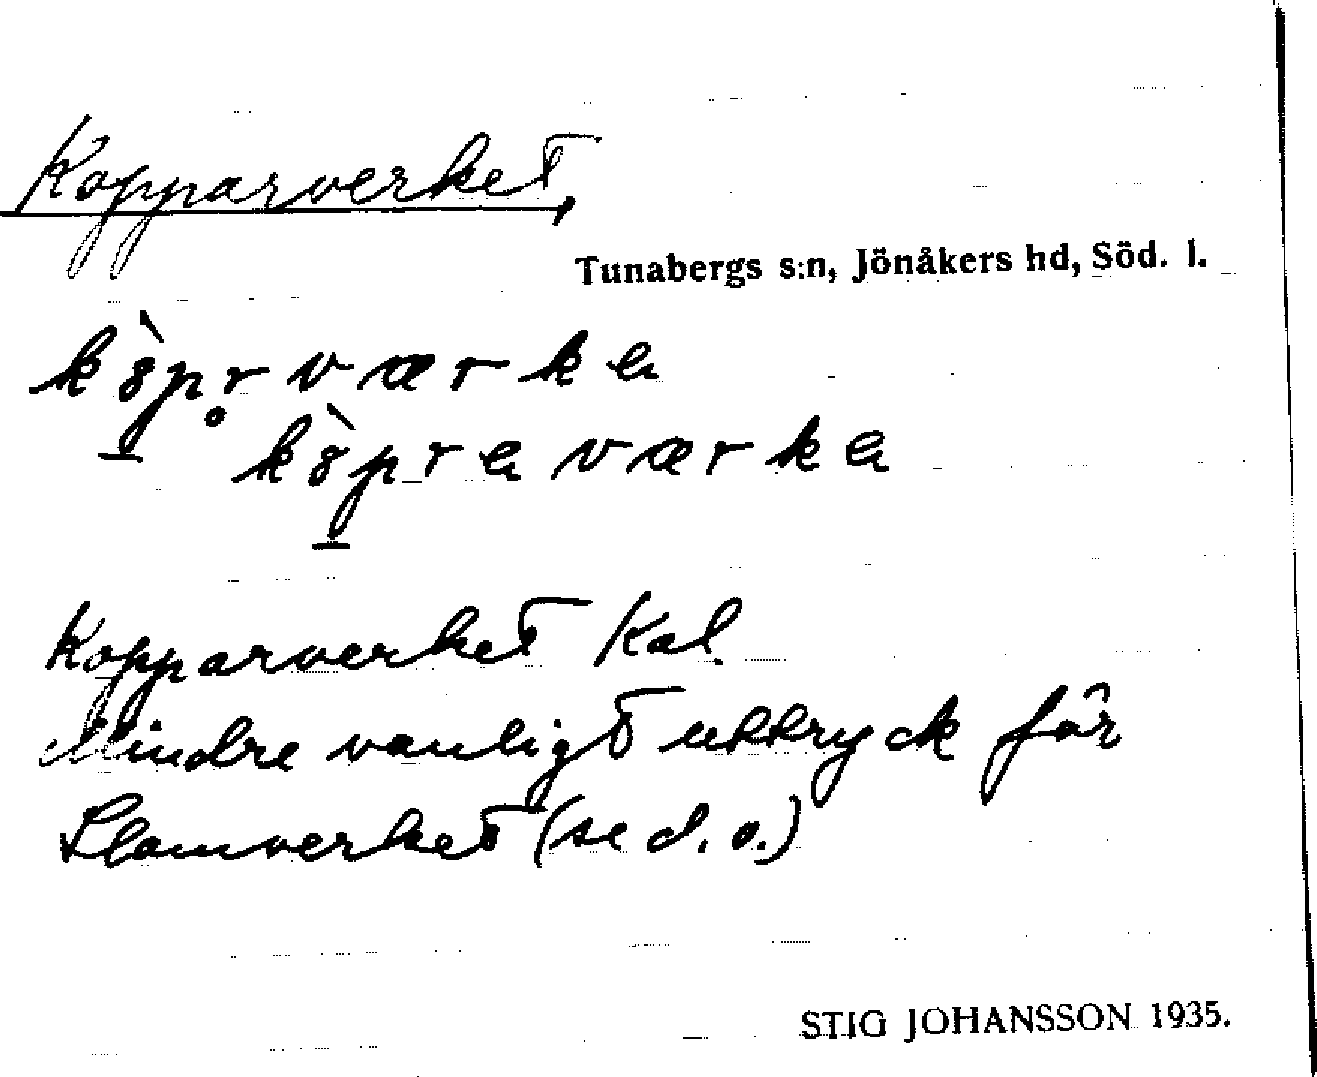 Kopparverket,
Tunabergs s:n, Jönåkers hd, Söd. l.
Kopparverket Kal.
Mindre vanligt uttryck för
Slamverket (se d. o.)
STIG JOHANSSON 1935.